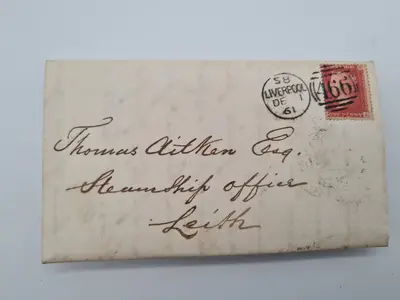 58
LIVERPOOL
DE 1
61
466
Thomas Aitken Esq.
Steamship office
Leith